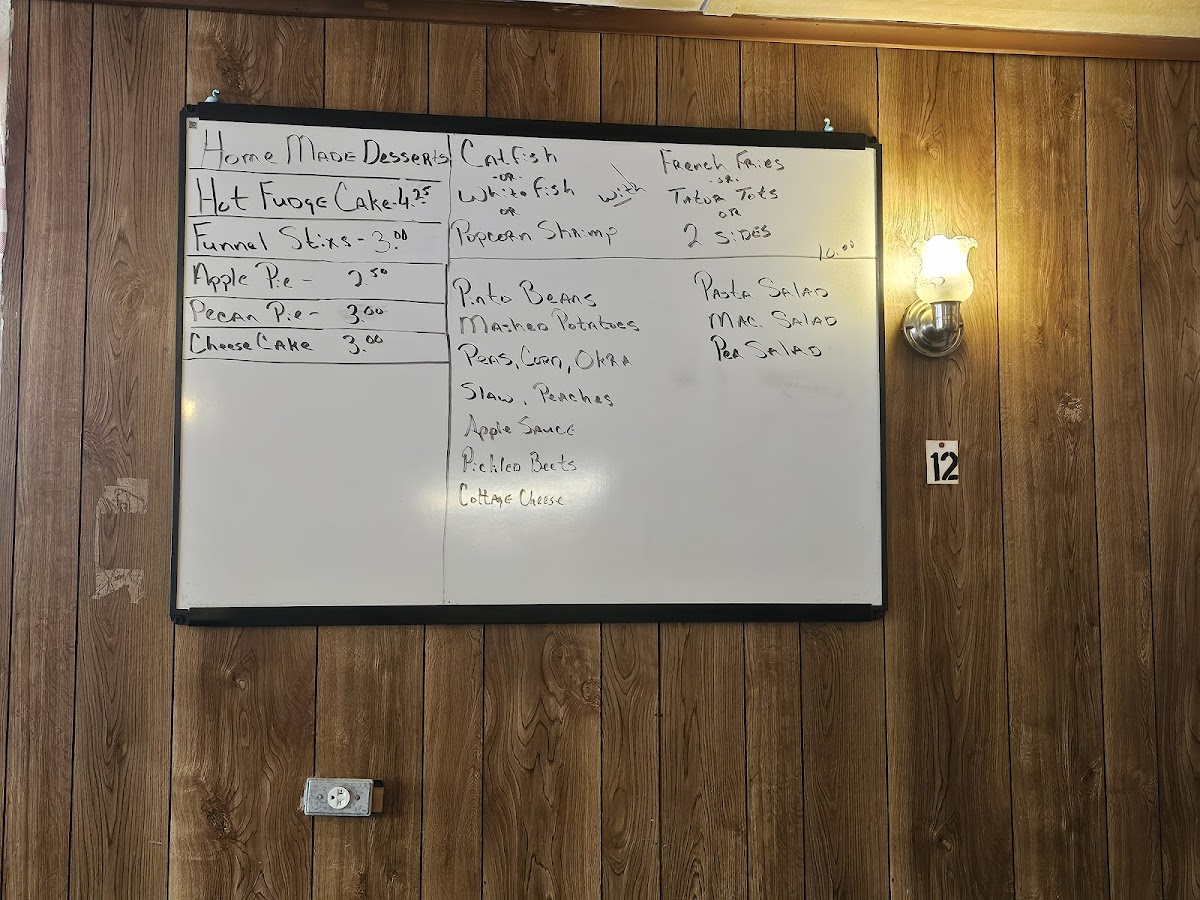 Home Made Desserts
Hot Fudge Cake-4.25
Funnel Stixs - 3.00
Apple Pie - 2.50
Pecan Pie - 3.00
Cheese Cake 3.00
Catfish
-or-
White Fish
or
Popcorn Shrimp
with
French Fries
-or-
Tator Tots
or
2 Sides
10.00
Pinto Beans
Mashed Potatoes
Peas, Corn, Okra
Slaw, Peaches
Apple Sauce
Pickled Beets
Cottage Cheese
Pasta Salad
Mac. Salad
Pea Salad
12